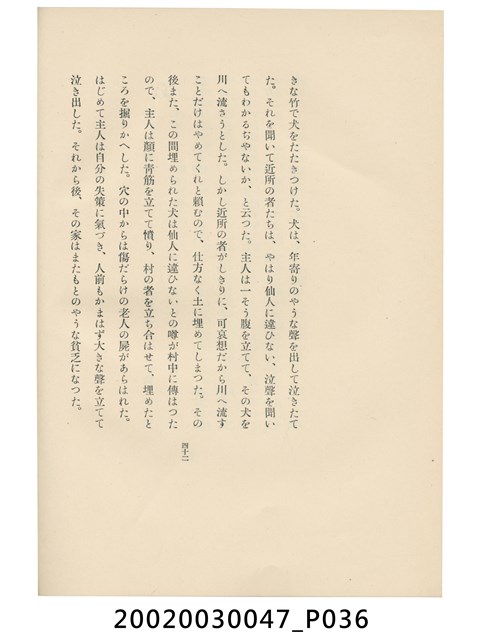 きな竹で犬をたたきつけた。犬は、年寄りのやうな聲を出して泣きたて
た。それを聞いて近所の者たちは、やはり仙人に違ひない、泣聲を聞い
てもわかるぢやないか、と云つた。主人は一そう腹を立てて、その犬を
川へ流さうとした。しかし近所の者がしきりに、可哀想だから川へ流す
ことだけはやめてくれと頼むので、仕方なく土に埋めてしまつた。その
後また、この間埋められた犬は仙人に違ひないとの噂が村中に傳はつた
ので、主人は顏に靑筋を立てて憤り、村の者を立ち合はせて、埋めたと
ころを掘りかへした。穴の中からは傷だらけの老人の屍があらはれた。
はじめて主人は自分の失策に氣づき、人前もかまはず大きな聲を立てて
泣き出した。それから後、その家はまたもとのやうな貧乏になつた。
四十二
20020030047_P036